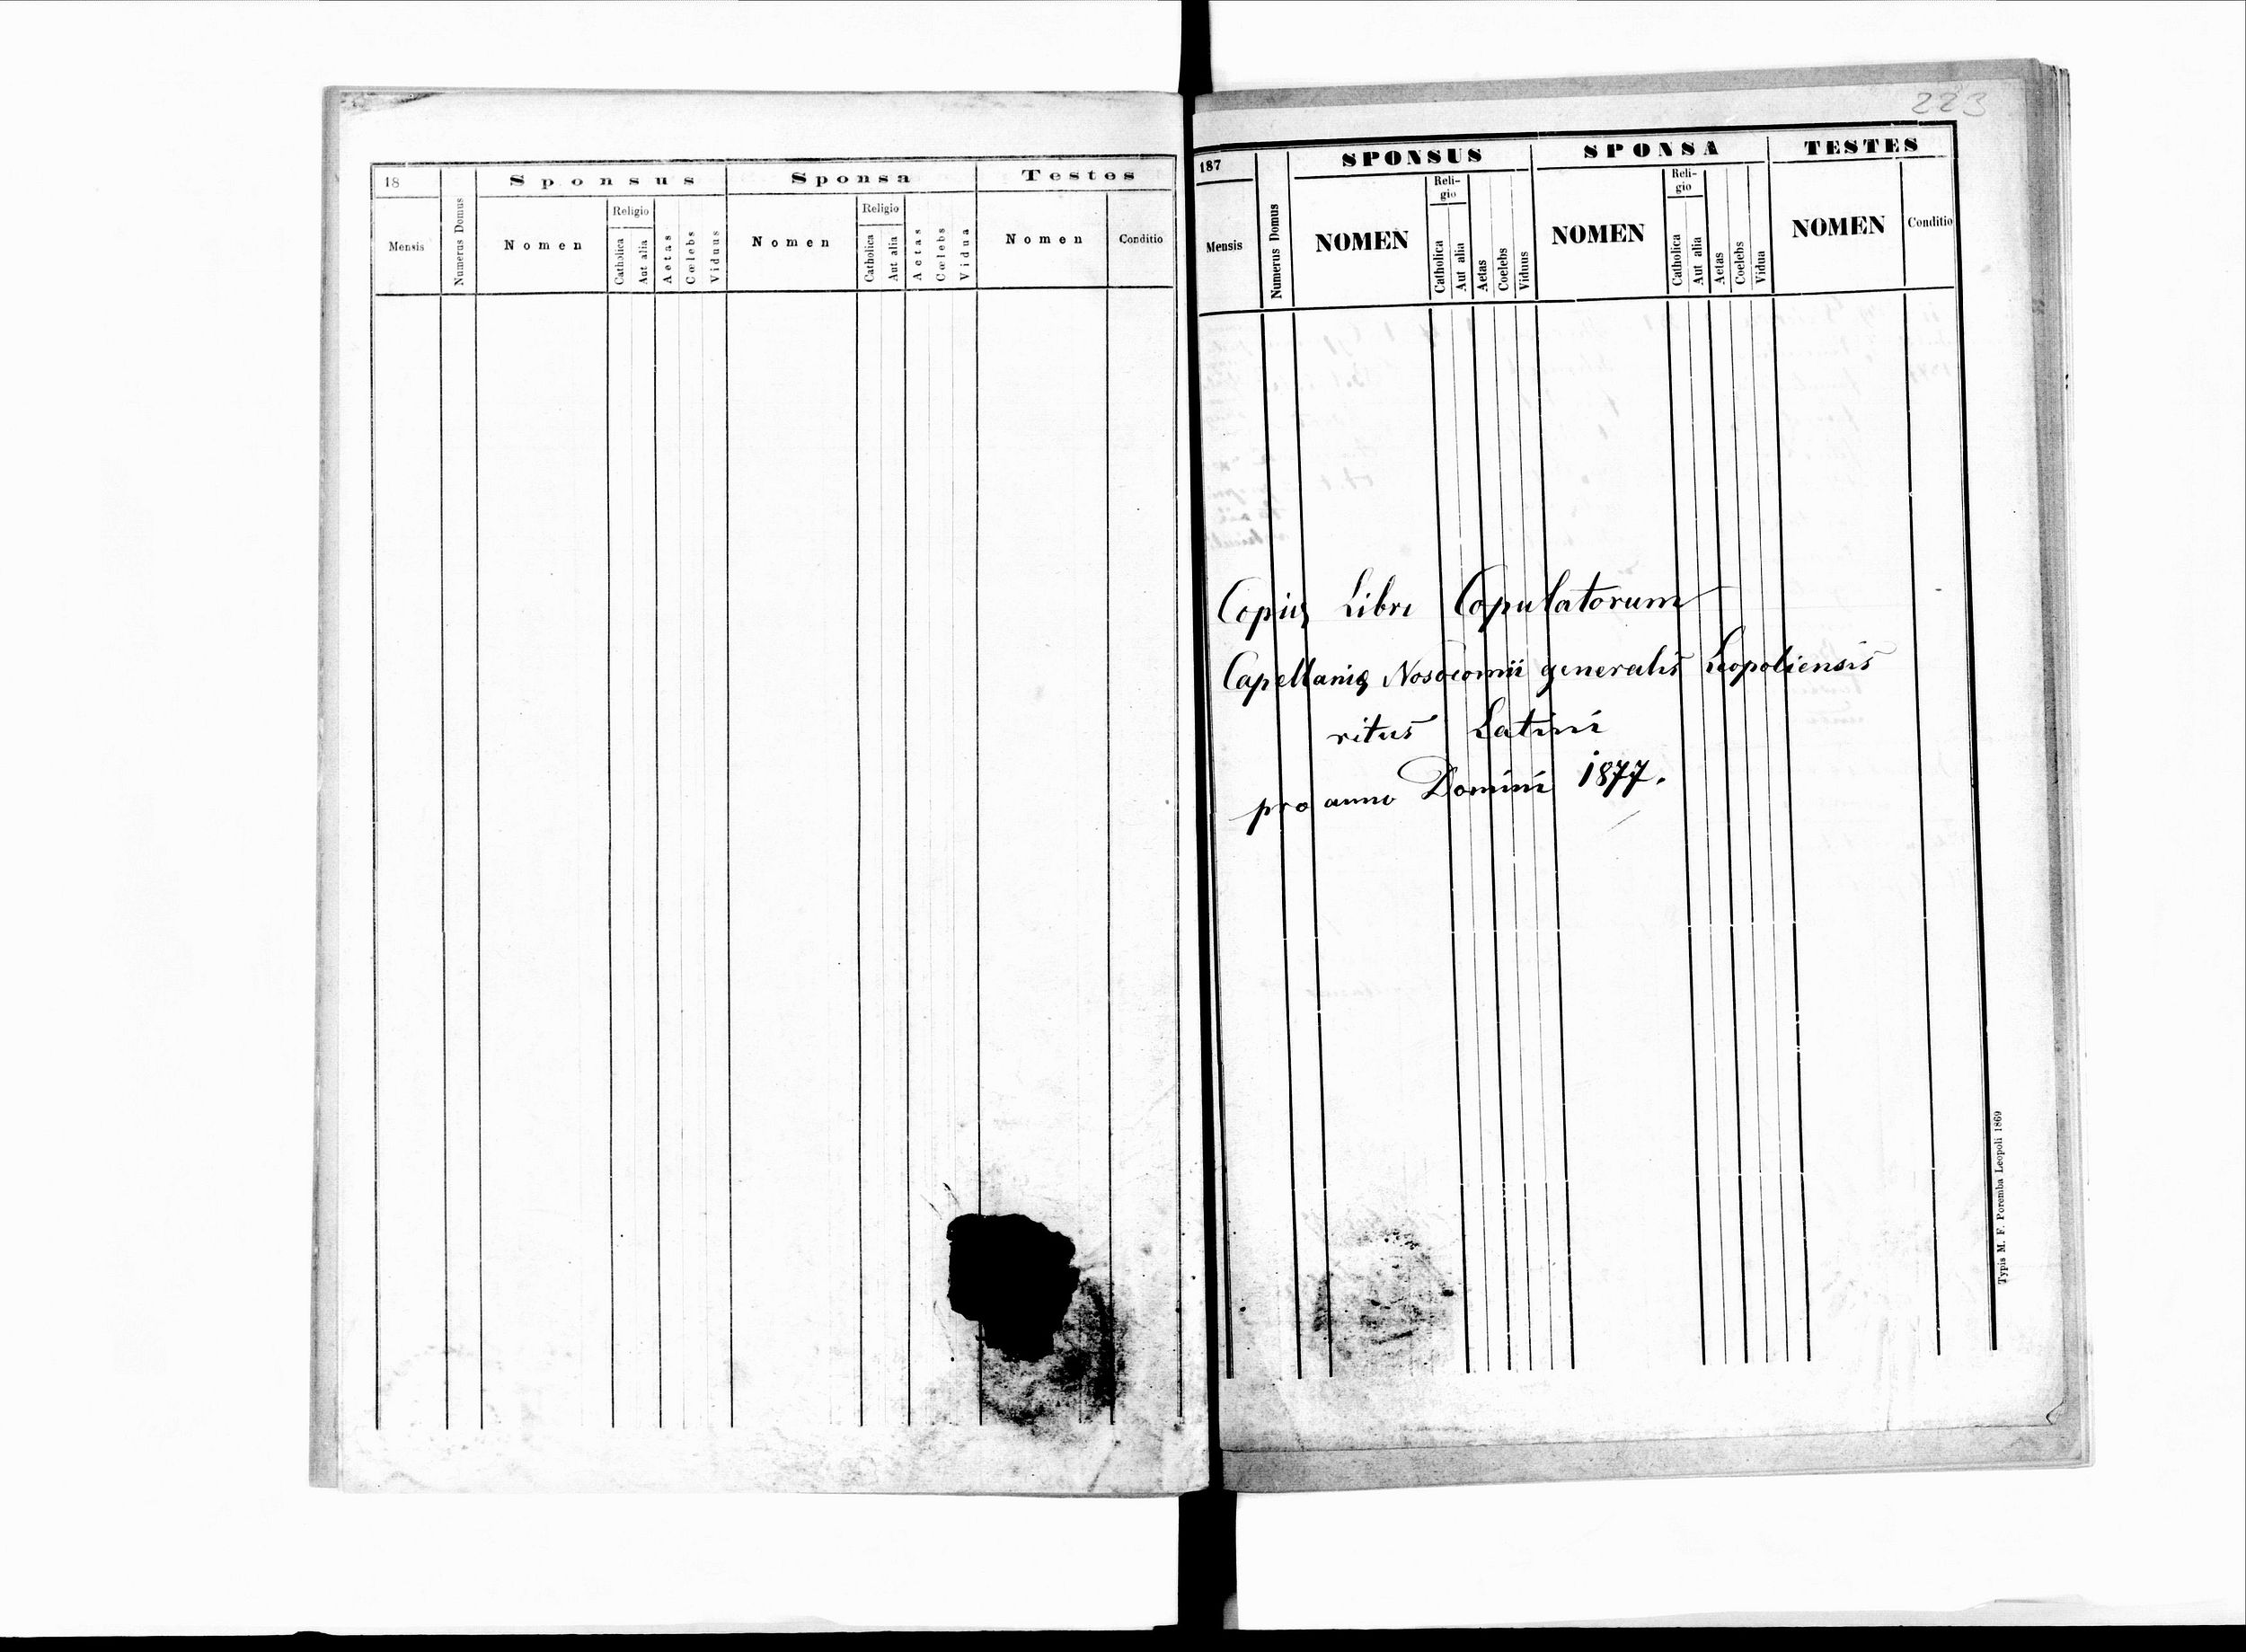 18
Sponsus
Sponsa
Testes
Mensis
Numerus Domus
Nomen
Religio
Catholica
Aut alia
Aetas
Cœlebs
Viduus
Nomen
Religio
Catholica
Aut alia
Aetas
Cœlebs
Vidua
Nomen
Conditio
223
187
SPONSUS
SPONSA
TESTES
Mensis
Numerus Domus
NOMEN
Reli-
gio
Catholica
Aut alia
Aetas
Coelebs
Viduus
NOMEN
Reli-
gio
Catholica
Aut alia
Aetas
Coelebs
Vidua
NOMEN
Conditio
Copię Libri Copulatorum
Capellanię Nosocomii generalis Leopoliensis
ritus Latini
pro anno Domini 1877.
Typis M. F. Poremba Leopoli 1869